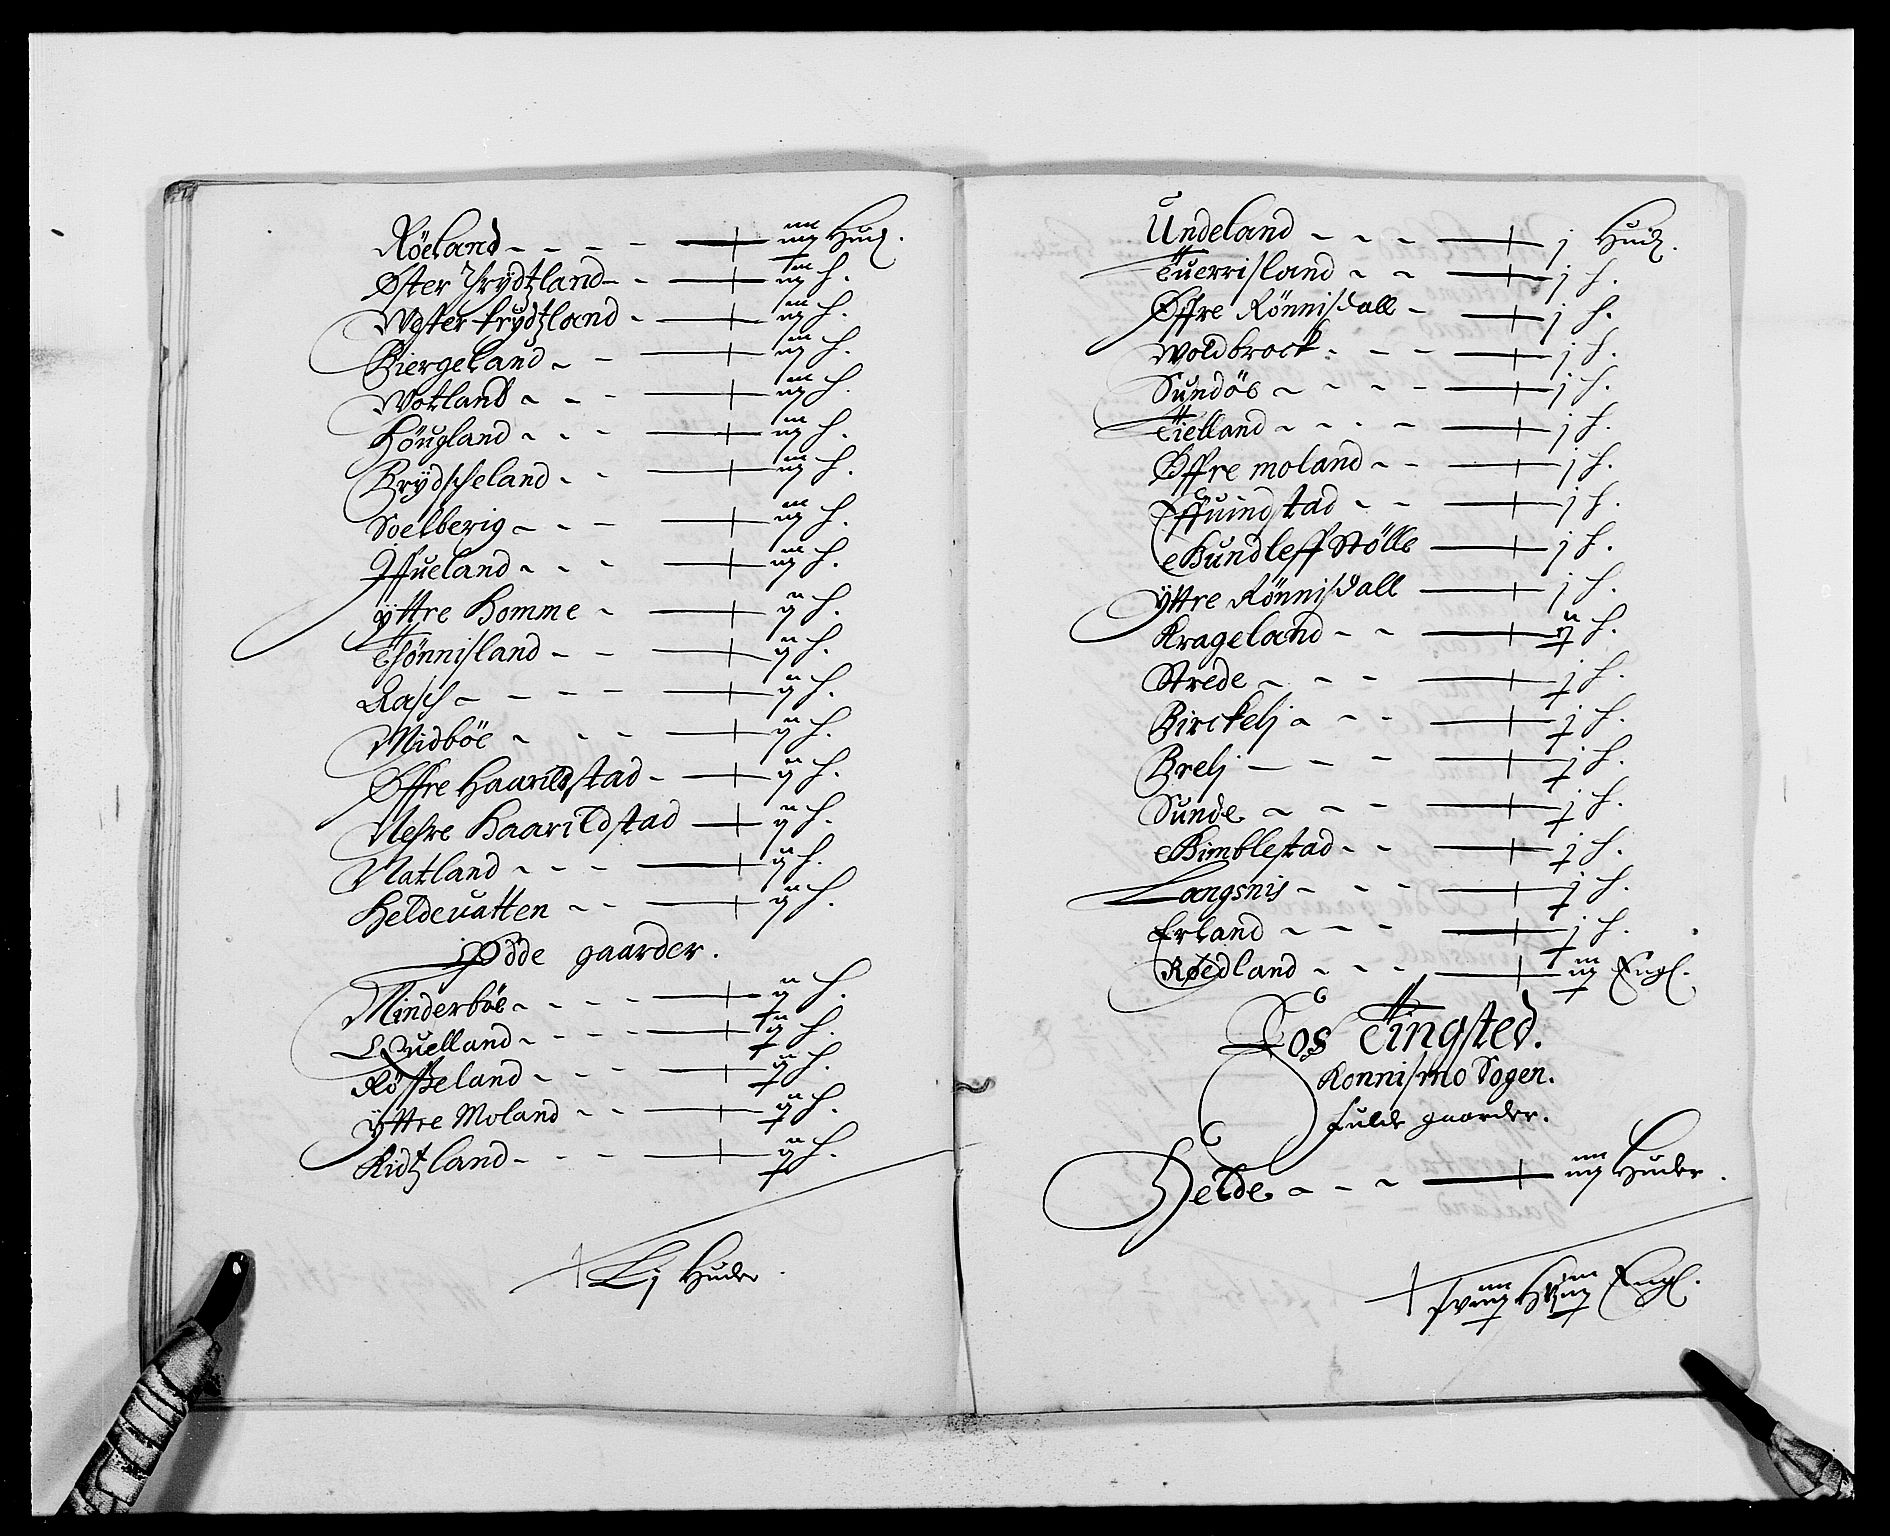 Röeland - - - - iiij Hud.
Øster Frydtzland - - iiij h.
Wester frydtzland - iiij h.
Biergeland - - iiij h.
Wotland - - - iiij h.
Höugland - - - iiij h.
Brydscheland - - iiij h.
Soelberig - - - iiij h.
Iffueland - - - iiij h.
yttre Homme - ij h.
Tönnisland - - ij h.
Aasch - - - - ij h.
Midböe - - - ij h.
Øffre Haarildstad - ij h.
Nehre Haarildstad ij h.
Natland - - - ij h.
Heldeuatten - - ij h.
Øde gaarder.
Minderböe - - - - ij h.
Quelland - - - - ij h.
Rösseland - - - ij h.
yttre Moland - - ij h.
Kidtzland - - - ij h.
Lj Huder.
Undeland - - - j Hud.
Tuerrisland - - j h.
Øffre Rönnisdall - j h.
Woldbrock - - - j h.
Sundöe - - - - j h.
Tielland - - - - j h.
Øffre moland - - j h.
Effuindstad - - j h.
Gundleff Stölle j h.
yttre Rönnisdall j h.
Krageland - - ij h.
Strede - - - j h.
Birckelj - - - j h.
Brelj - - - j h.
Sunde - - - j h.
Gimblestad - - j h.
Langsnis - - - j h.
Erland - - - j h.
Røedland - - - iij Engl.
Fos Tingsted.
Konnismo Sogen.
fulde gaarder.
Helde - - - iiij Huder.
Engl.